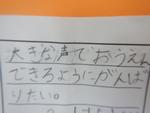 大きな声でおうえん
できるようにがんば
りたい。